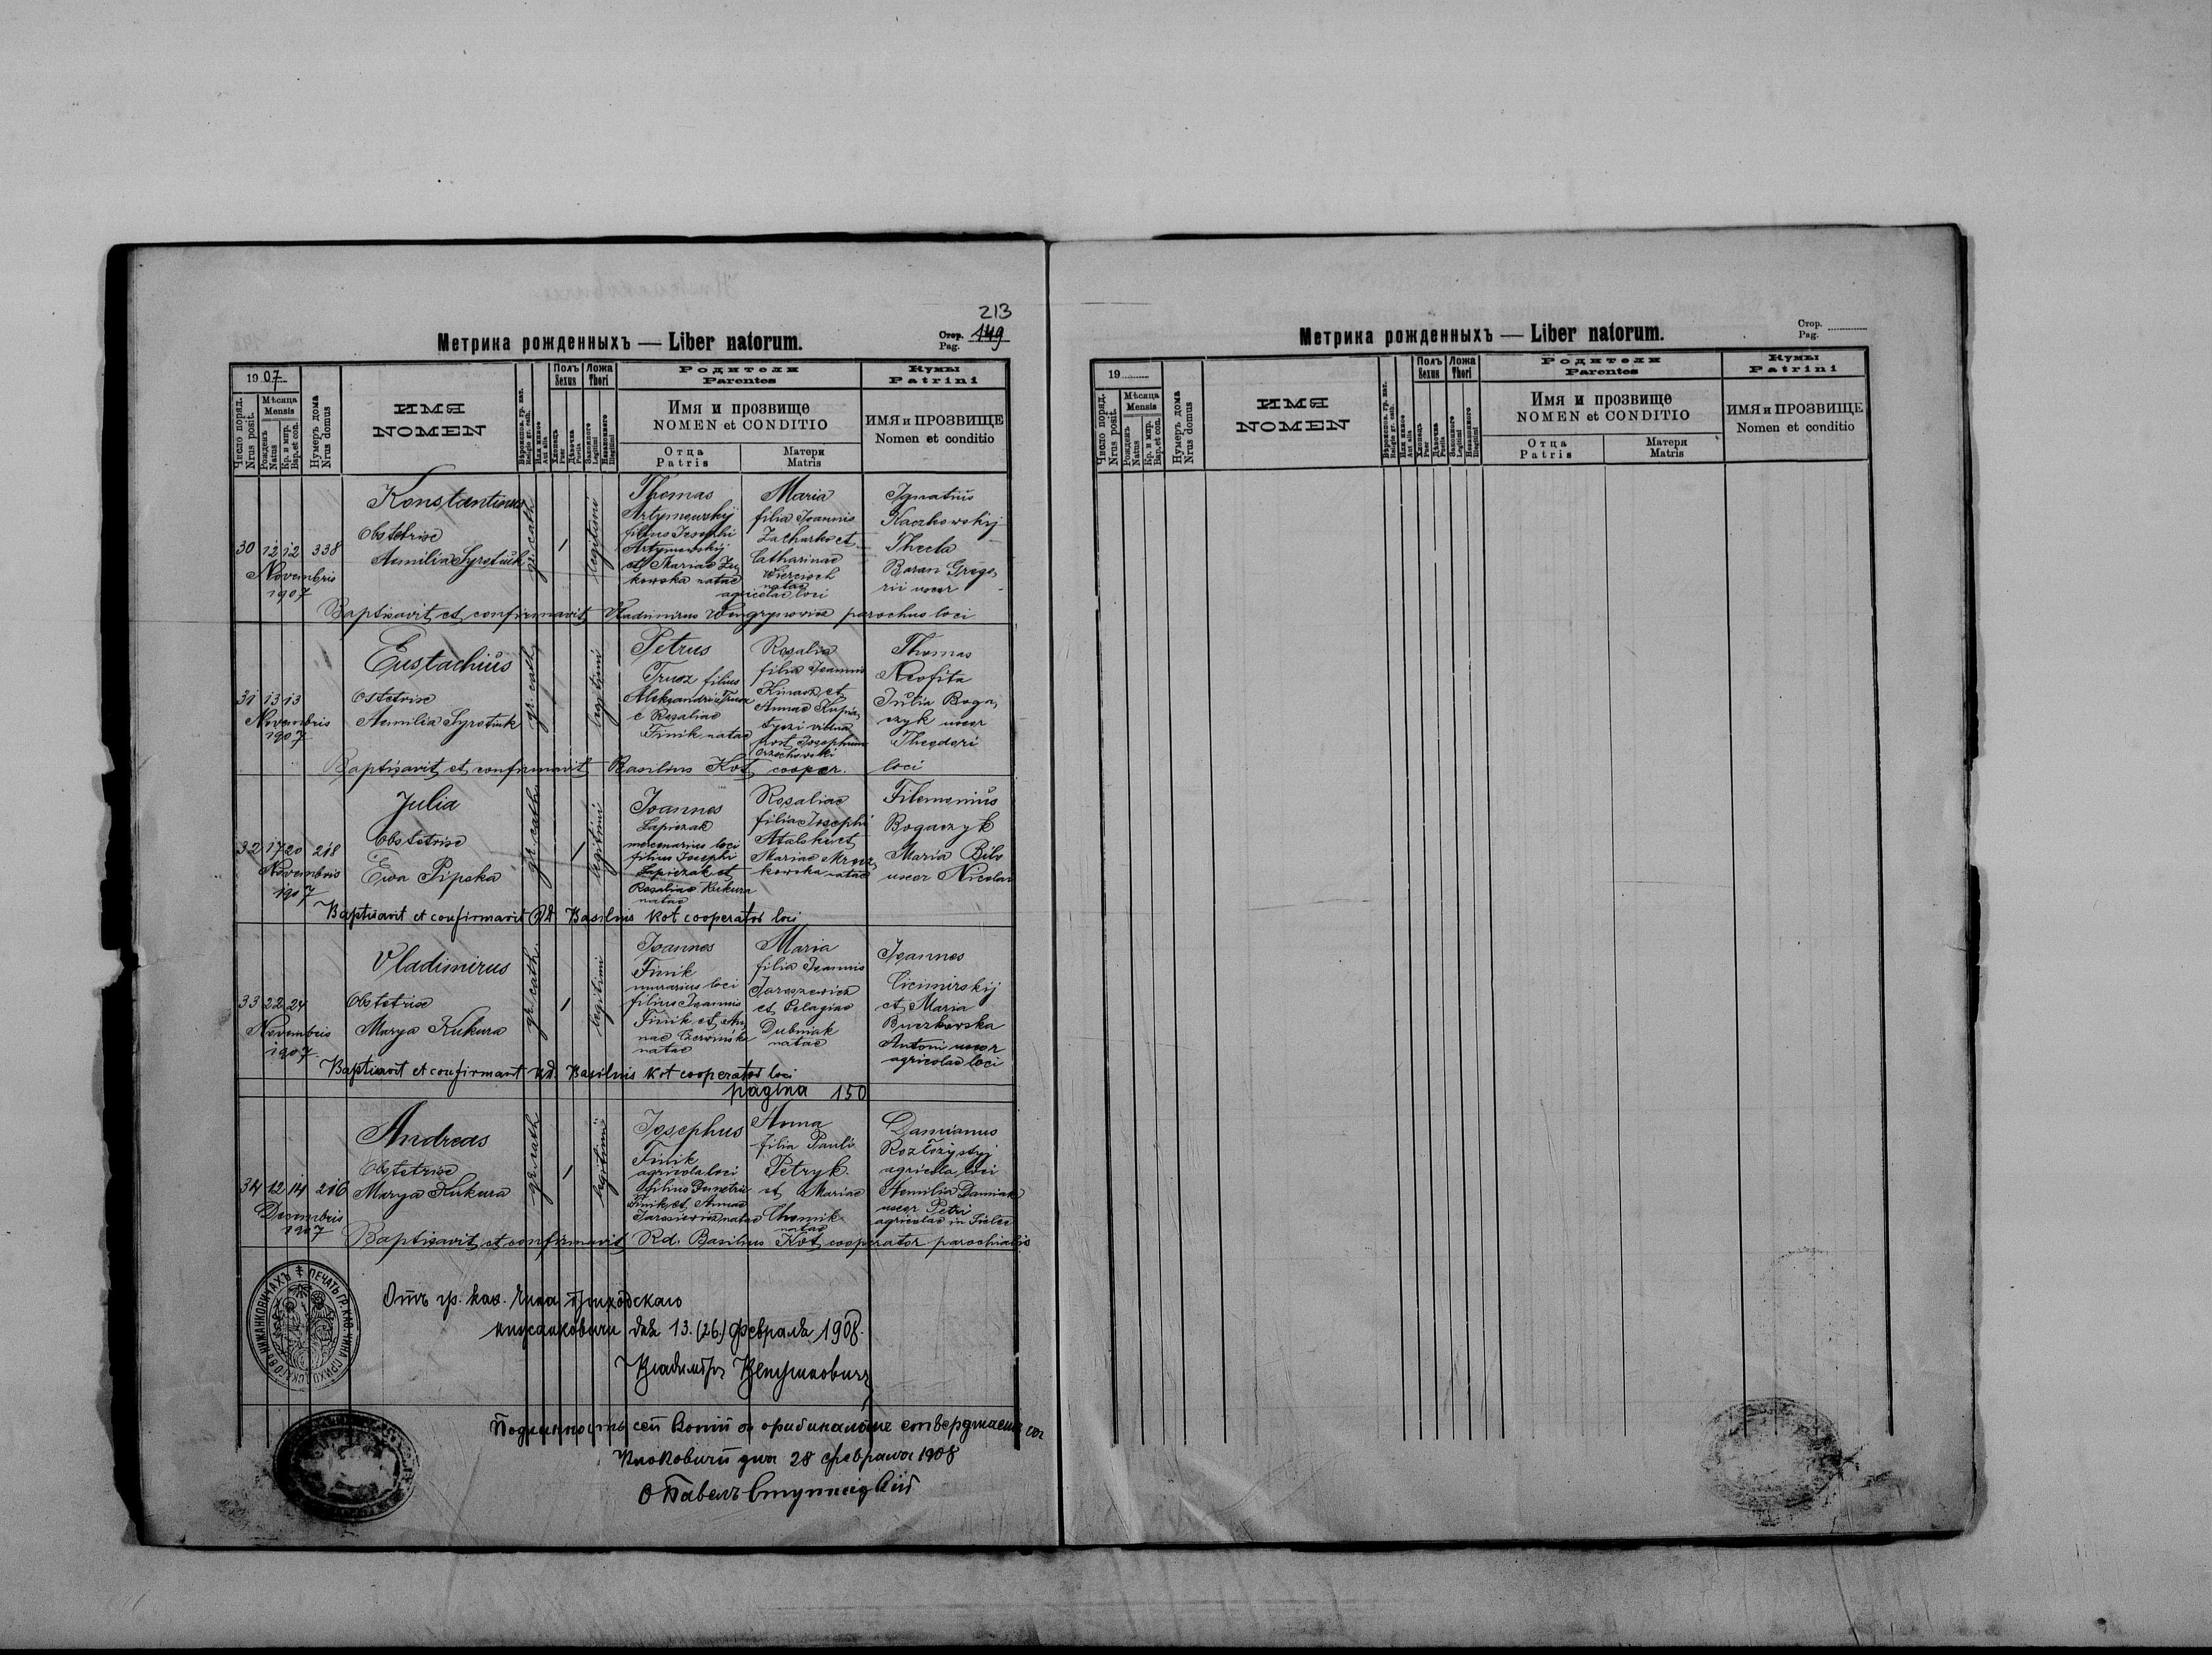 213
Метрика рожденныхъ — Liber natorum.
Стор. 149
Pag.
1907
Число поряд.
Nrus posit.
Мѣсяца
Mensis
Рожденъ
Natus
Кр. и мир.
Bap. et con.
Нумеръ дома
Nrus domus
ИМЯ
NOMEN
Религio gr. cath.
Или инное
Aut alia
Полъ
Sexus
Хлопецъ
Puer
Дѣвочка
Puella
Ложа
Thori
Законного
Legitimi
Незаконного
Illegitimi
Родители
Parentes
Имя и прозвище
NOMEN et CONDITIO
Отца
Patris
Матери
Matris
Кумы
Patrini
ИМЯ и ПРОЗВИЩЕ
Nomen et conditio
30 12 12 338
Novembris
1907
Konstantinus
Obstetrix
Aemilia Syrotiuk
gr. cath
legitimi
Thomas
Artymowskij
filius Josephi
Artymowskij
et Mariae
kowska natae
Maria
filia Joannis
Zacharko et
Catharinae
natae
agricolae loci
Ignatius
Kaczkowskij
Thecla
Baran Grego
rii uxor
Baptisavit et confirmavit Vladimirus Wengrynowicz parochus loci
31 13 13
Novembris
1907
Eustachius
Obstetrix
Aemilia Syrotiuk
gr. cath
legitimi
Petrus
Trusz filius
Aleksandri Trusz
e Rosaliae
Finik natae
Rosalia
filia Joannis
Kinasz et
Annae
vidua
post Josephum
Orzechowski
Thomas
Neofita
Julia Boga
czyk uxor
Theodori
Baptisavit et confirmavit Basilius Kot cooper. loci
32 17 20 218
Novembris
1907
Julia
Obstetrix
Ewa Pipska
gr. cath.
legitimi
Joannes
Lapiczak
mercenarius loci
filius Josephi
Lapiczak et
Rosaliae Kukura
natae
Rosaliae
filia Josephi
Mariae
kowska natae
Filemonius
Bogaczyk
Maria Bilo
uxor Nicolai
Baptisavit et confirmavit Rd. Basilius Kot cooperator loci
33 22 24
Novembris
1907
Vladimirus
Obstetrix
Marya Kukura
gr. cath.
legitimi
Joannes
Finik
murarius loci
filius Joannis
Finik et An
nae Czerwinska
natae
Maria
filia Joannis
Jaroszewicz
et Pelagiae
Dubniak
natae
Joannes
Cicimirskij
et Maria
Buczkowska
Antoni uxor
agricolae loci
Baptisavit et confirmavit Rd. Basilius Kot cooperator loci
pagina 150
34 12 14 216
Decembris
1907
Andreas
Obstetrix
Marya Kukura
gr. cath
legitimi
Josephus
Finik
agricola loci
filius Demetrii
Finik et Annae
Jarosiewicz natae
Anna
filia Pauli
Petryk
et Mariae
Chomik
natae
Damianus
Rozłożystyj
agricola loci
Aemilia Damiak
uxor Petri
agricolae in
Baptisavit et confirmavit Rd. Basilius Kot cooperator parochialis
Отъ гр. каѳ. Чина Приходскаго
Нижанковичи дня 13. (26.) февраля 1908.
Владиміръ Венгриновичъ
сеи копіи оригиналомъ
дня 28 февраля 1908
О Павелъ
Метрика рожденныхъ — Liber natorum.
Стор.
Pag.
19
Число поряд.
Nrus posit.
Мѣсяца
Mensis
Рожденъ
Natus
Кр. и мир.
Bap. et con.
Нумеръ дома
Nrus domus
ИМЯ
NOMEN
Или инное
Aut alia
Полъ
Sexus
Хлопецъ
Puer
Дѣвочка
Puella
Ложа
Thori
Законного
Legitimi
Незаконного
Illegitimi
Родители
Parentes
Имя и прозвище
NOMEN et CONDITIO
Отца
Patris
Матери
Matris
Кумы
Patrini
ИМЯ и ПРОЗВИЩЕ
Nomen et conditio